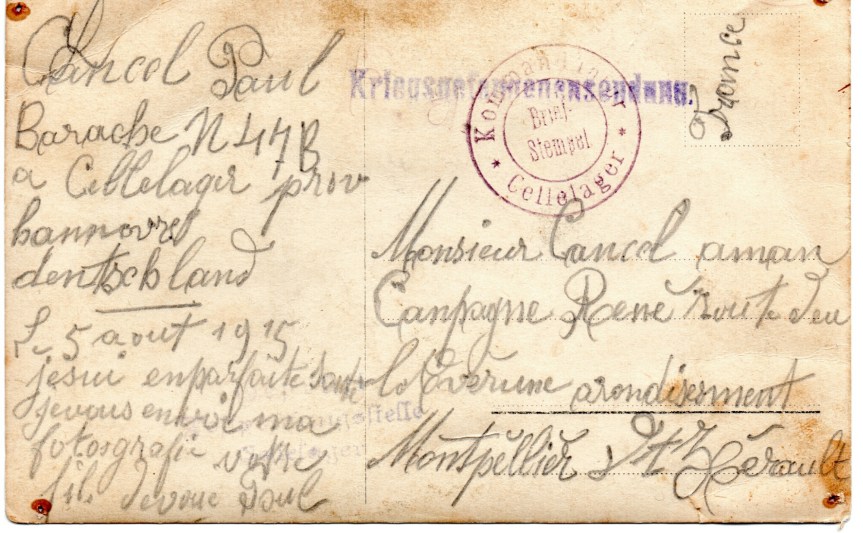 Cancel Paul
Barache N 47B
a Celtelager prov
hannovre
dentschland
Le 5 aout 1915
jesui enparfaite sante
jevous envoi ma
fotosgrafie votre
fil devoue Paul
Kriegsgefangenensendung.
Kommandantur
Brief-
Stempel
* Cellelager *
France
Monsieur Cancel aman
Canpagne René route deu
laVérune arondisement
Montpellier Hérault